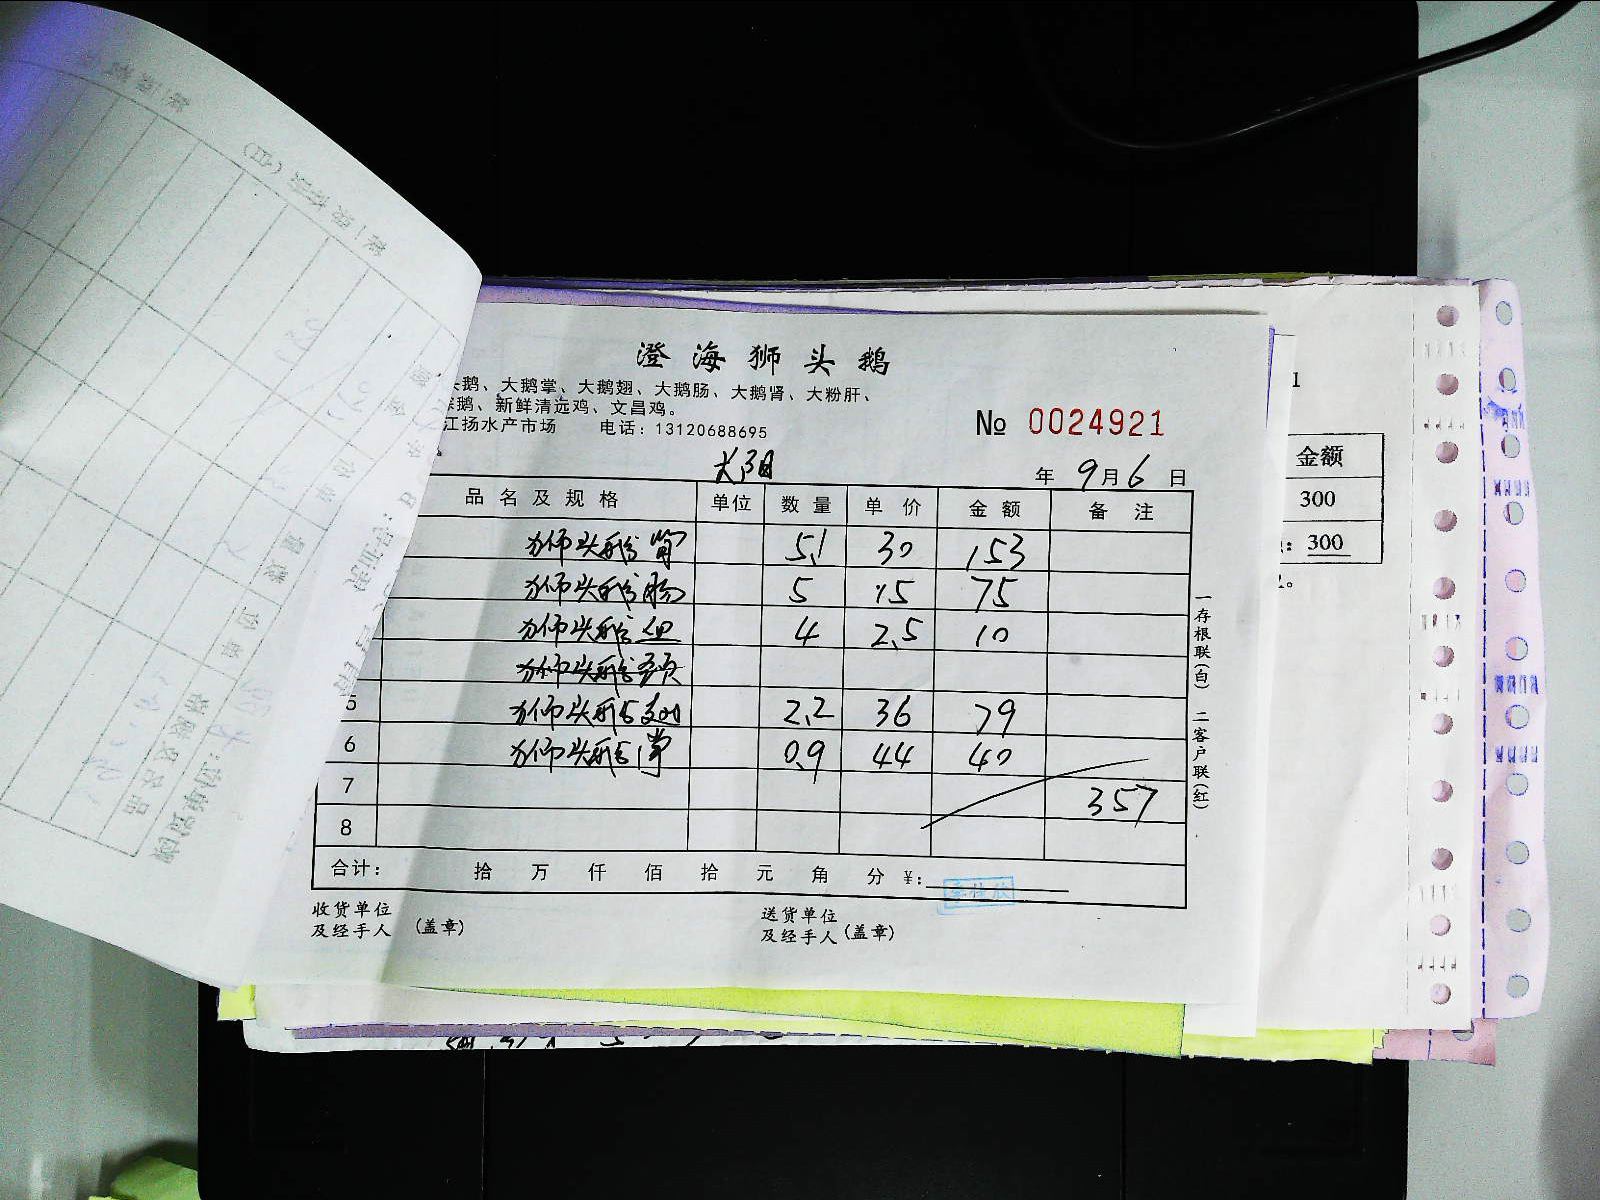 澄海狮头鹅
头鹅、大鹅掌、大鹅翅、大鹅肠、大鹅肾、大粉肝、
鹅、新鲜清远鸡、文昌鸡。
江扬水产市场 电话：13120688695
№ 0024921
年 9月6日
品名及规格 单位 数量 单价 金额 备注
狮头鹅肾 5.1 30 153
狮头鹅肠 5 15 75
狮头鹅血 4 2.5 10
狮头鹅颈
5 狮头鹅翅 2.2 36 79
6 狮头鹅掌 0.9 44 40
7 357
8
合计： 拾 万 仟 佰 拾 元 角 分 ¥：
收货单位
及经手人 (盖章)
送货单位
及经手人 (盖章)
一存根联(白) 二客户联(红)
1
金额
300
：300